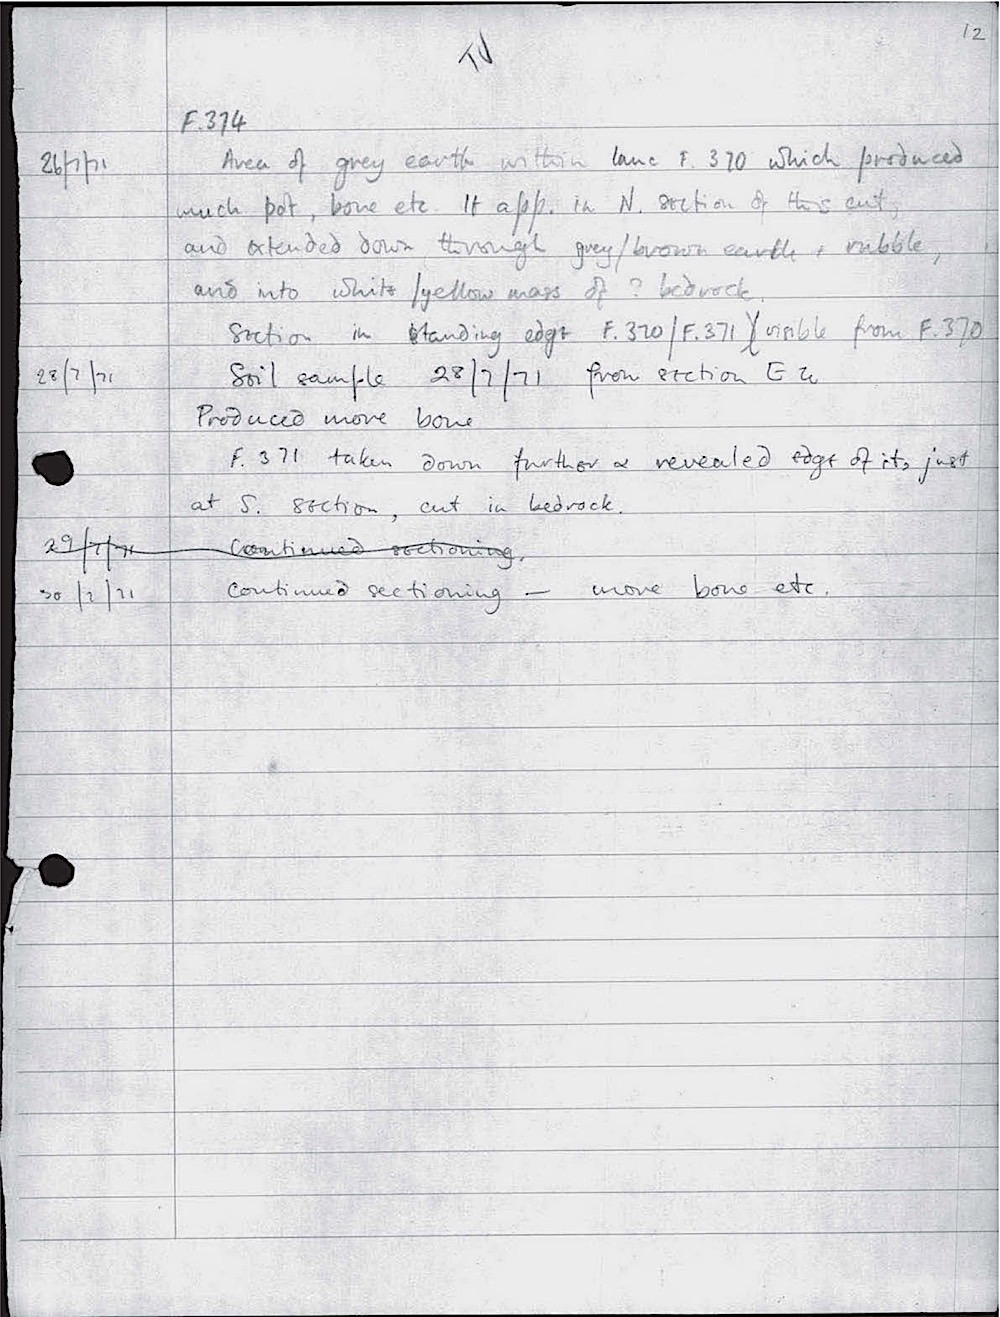 12
TV
F.374
26/7/71 Area of grey earth within lane F. 370 which produced
much pot, bone etc. It app. in N. section of this cut,
and extended down through grey/brown earth + rubble,
and into white/yellow mass of ? bedrock.
Section in standing edge F.370/F.371 visible from F.370
28/7/71 Soil sample 28/7/71 from section E
Produced more bone
F. 371 taken down further & revealed edge of it, just
at S. section, cut in bedrock.
29/7/71 Continued sectioning.
30/7/71 Continued sectioning — more bone etc.